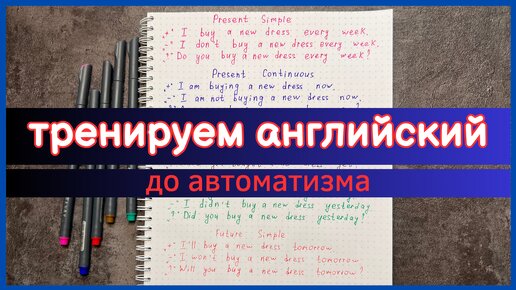 Present Simple
+ I buy a new dress every week.
- I don't buy a new dress every week.
? Do you buy a new dress every week?
Present Continuous
+ I am buying a new dress now.
- I am not buying a new dress now.
тренируем английский
до автоматизма
- I didn't buy a new dress yesterday
? Did you buy a new dress yesterday?
Future Simple
+ I'll buy a new dress tomorrow.
- I won't buy a new dress tomorrow.
? Will you buy a new dress tomorrow?